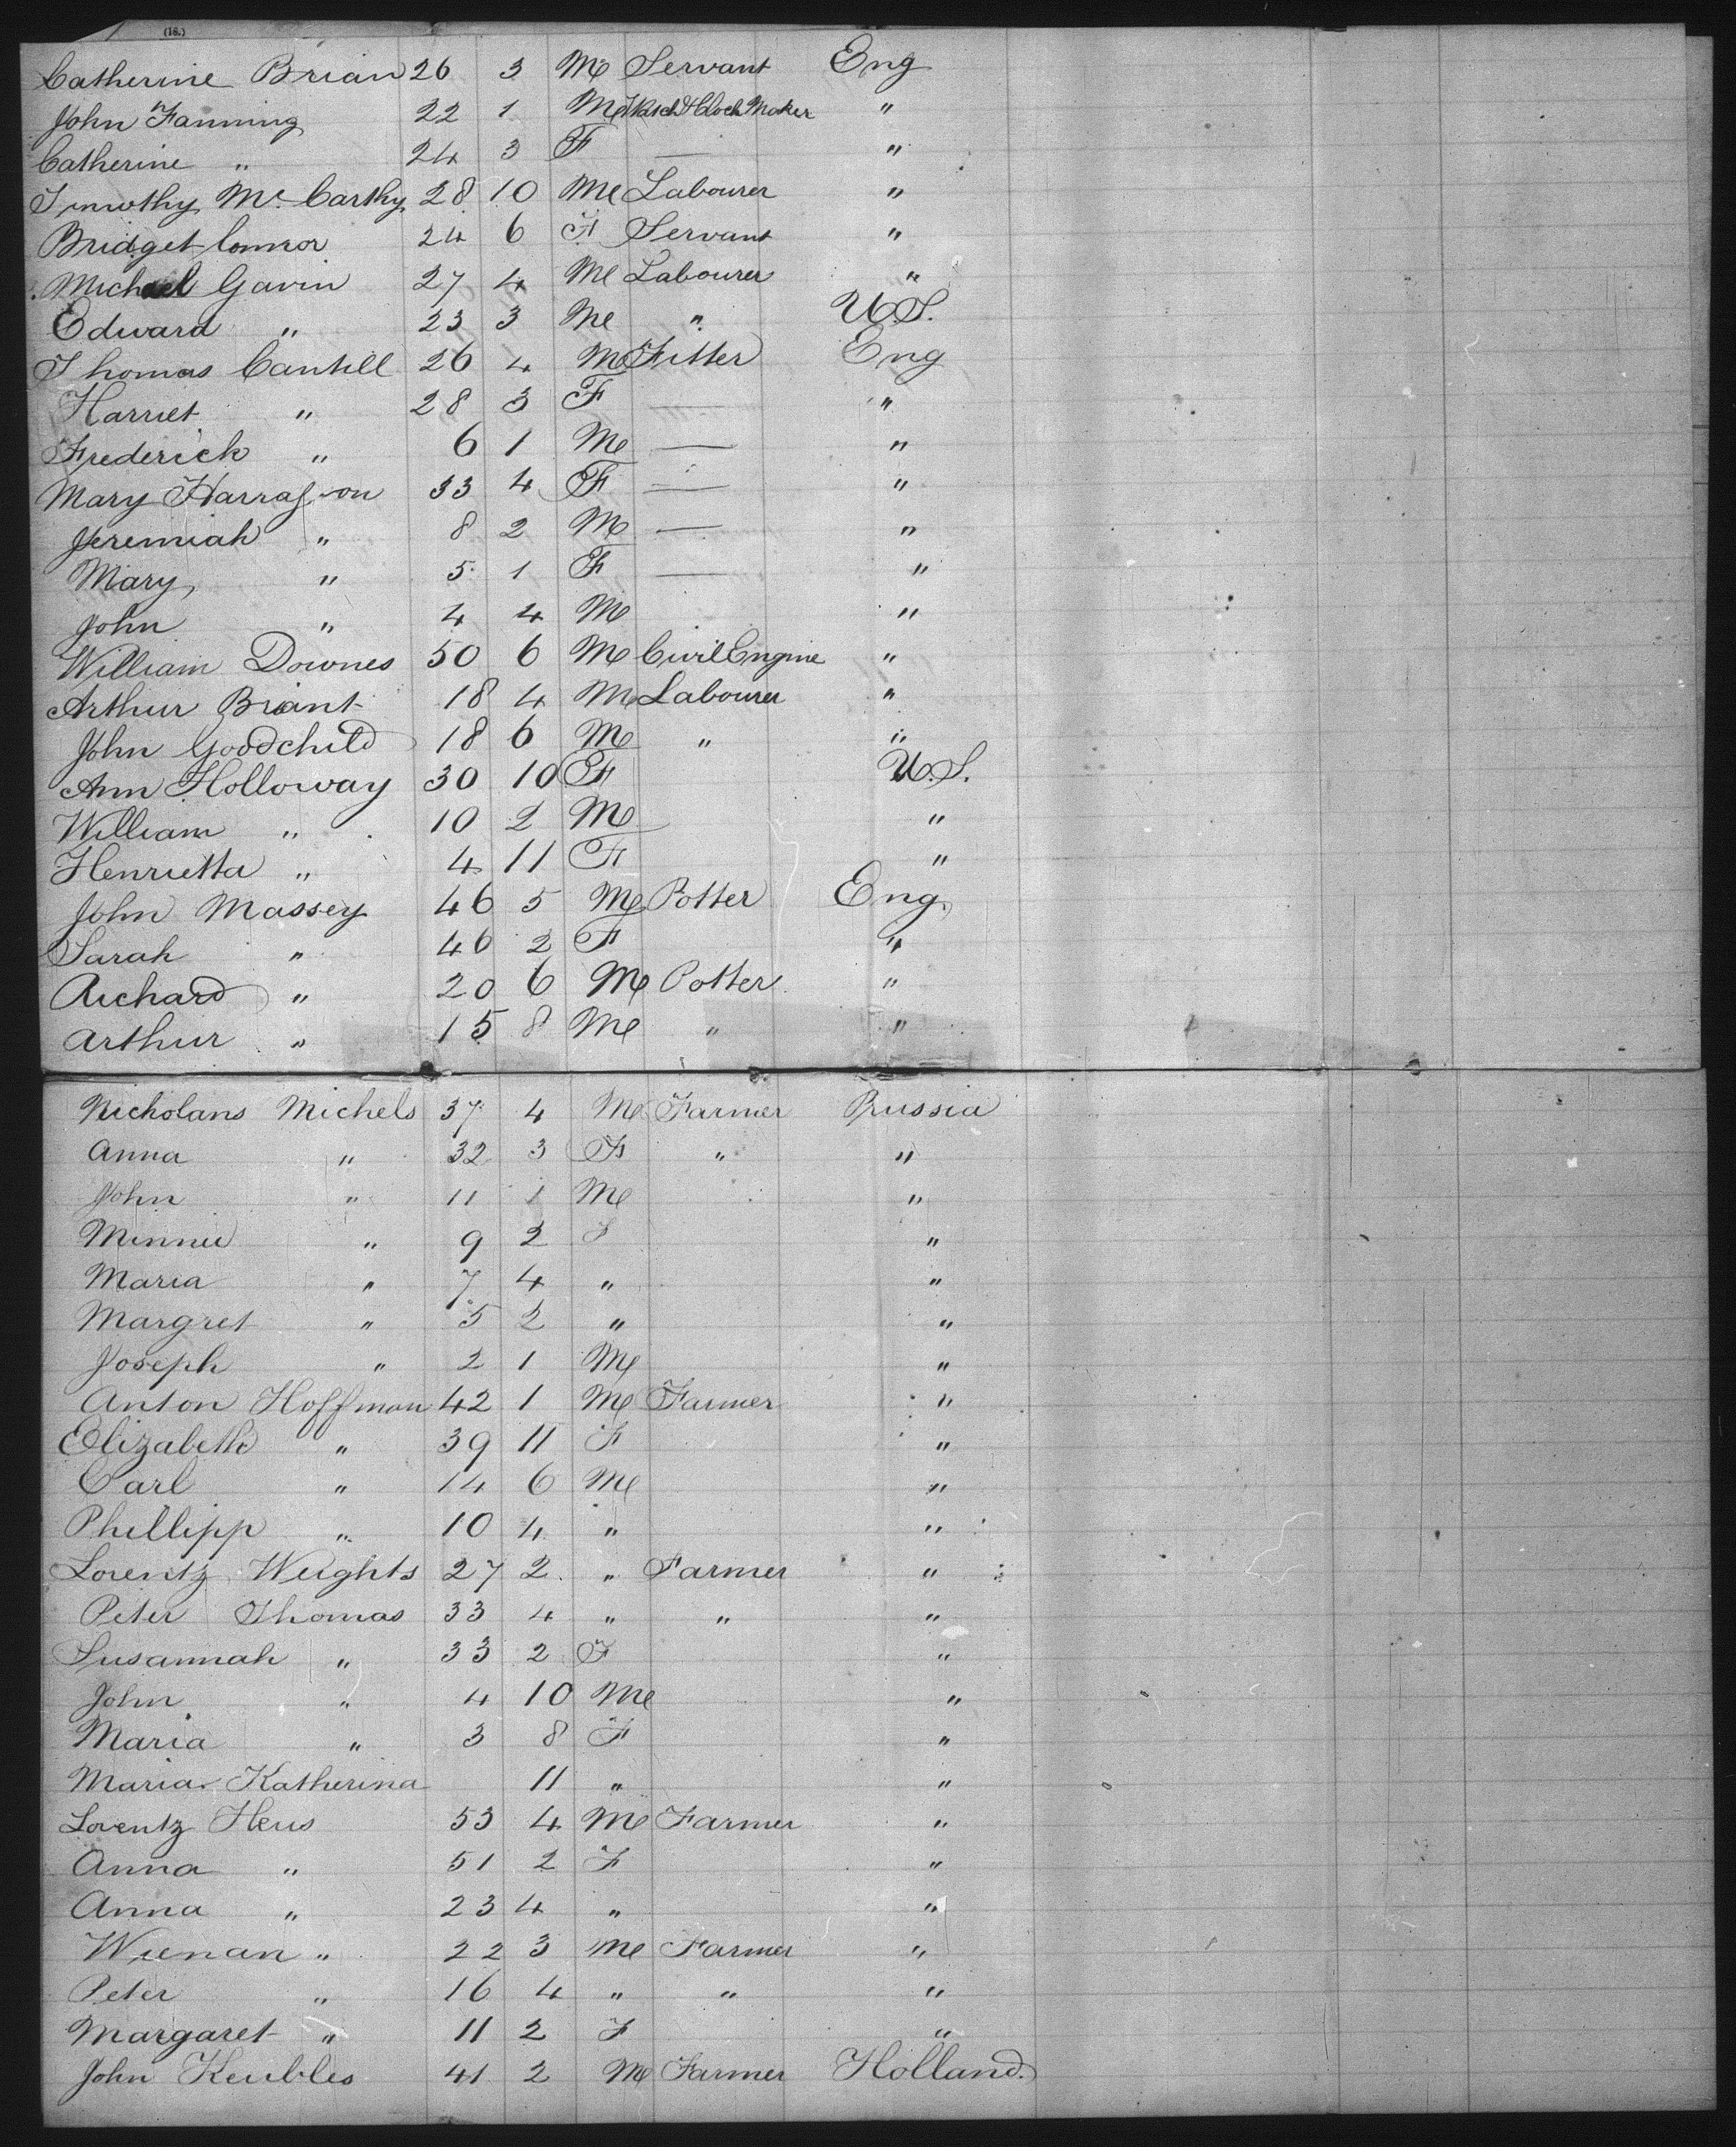 (18.)
Catherine Brian 26 3 M Servant Eng
John Fanning 22 1 M Watch & Clock Maker "
Catherine " 24 3 F — "
Timothy Mc Carthy 28 10 M Labourer "
Bridget Connor 24 6 F Servant "
Michael Gavin 27 4 M Labourer "
Edward " 23 3 M " U.S.
Thomas Cantill 26 4 M Fitter Eng
Harriet " 28 3 F — "
Frederick " 6 1 M — "
Mary Harrasson 33 4 F — "
Jeremiah " 8 2 M — "
Mary " 5 1 F — "
John " 4 4 M "
William Downes 50 6 M Civil Engine "
Arthur Briant 18 4 M Labourer "
John Goodchild 18 6 M " "
Ann Holloway 30 10 F U.S.
William " 10 2 M "
Henrietta " 4 11 F "
John Massey 46 5 M Potter Eng
Sarah " 46 2 F "
Richard " 20 6 M Potter "
Arthur " 15 8 M " "
Nicholans Michels 37 4 M Farmer Prussia
Anna " 32 3 F " "
John " 11 1 M "
Minnie " 9 2 F "
Maria " 7 4 " "
Margret " 5 2 " "
Joseph " 2 1 M "
Anton Hoffman 42 1 M Farmer "
Elizabeth " 39 11 F "
Carl " 14 6 M "
Phillipp " 10 4 " "
Lorentz Weights 27 2 " Farmer "
Peter Thomas 33 4 " " "
Susannah " 33 2 F "
John " 4 10 M "
Maria " 3 8 F "
Maria Katherina 11 " "
Lorentz Heus 53 4 M Farmer "
Anna " 51 2 F "
Anna " 23 4 " "
Wienan " 22 3 M Farmer "
Peter " 16 4 " " "
Margaret " 11 2 F "
John Keubles 41 2 M Farmer Holland